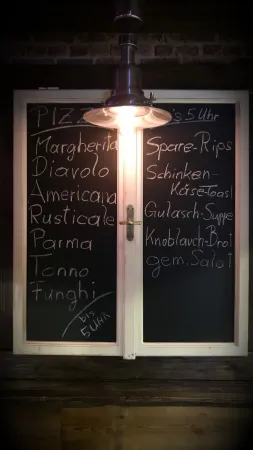 PIZZ
Margherita
Diavolo
Americana
Rusticale
Parma
Tonno
Funghi
bis
5 UHR
bis 5 Uhr
Spare-Rips
Schinken-
Käse-Toast
Gulasch-Suppe
Knoblauch-Brot
gem. Salat